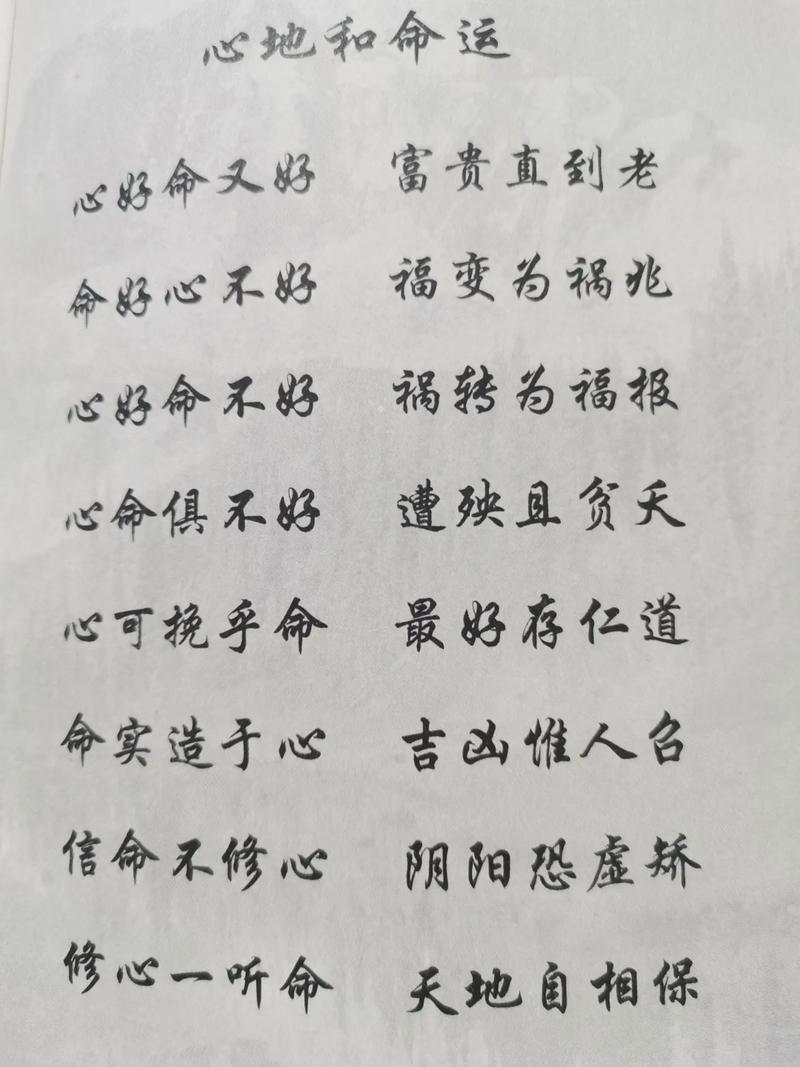 心地和命运
心好命又好 富贵直到老
命好心不好 福变为祸兆
心好命不好 祸转为福报
心命俱不好 遭殃且贫夭
心可挽乎命 最好存仁道
命实造于心 吉凶惟人召
信命不修心 阴阳恐虚矫
修心一听命 天地自相保